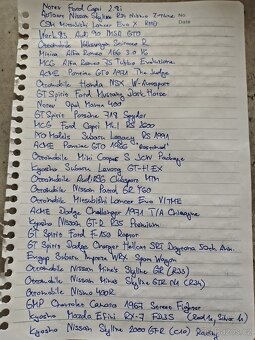 Norev Ford Capri 2.8i
Autoart Nissan Skyline R34 Nismo Z-Tune No.
CSM Mitsubishi Lancer Evo X RMD Date
Werk83 Audi 90 IMSA GTO
Ottomobile Volkswagen Scirocco R
Minion Alfa Romeo 155
MCG Alfa Romeo 75 Turbo Evoluzione
ACME Pontiac GTO 1971 The Judge
Ottomobile Honda NSX W-Aerosport
GT Spirit Ford Mustang Dark Horse
Norev Opel Manta 400
GT Spirit Porsche 718 Spyder
MCG Ford Capri Mk.1 RS 2600
IXO Models Subaru Legacy RS 1991
ACME Pontiac GTO 1970
Ottomobile Mini Cooper S JCW Package
Kyosho Subaru Levorg GT-H EX
Ottomobile Audi RS6 Clubsport MTM
Ottomobile Nissan Patrol GR Y60
Ottomobile Mitsubishi Lancer Evo VI TME
ACME Dodge Challenger 1971 T/A
Kyosho Nissan GT-R R35 Premium
GT Spirit Ford F-150 Raptor
GT Spirit Dodge Charger Hellcat SRT Daytona 50th Anv.
Engup Subaru Impreza WRX Sport Wagon
Ottomobile Nissan Mine's Skyline GTR (R34)
Ottomobile Nissan Mine's Skyline GTR N1 (R34)
Ottomobile Nismo 400R
GMP Chevrolet Camaro 1967 Street Fighter
Kyosho Mazda Efini RX-7 FD3S (Red 1x, Silver 1x)
Kyosho Nissan Skyline 2000 GT-R (C10) Racing